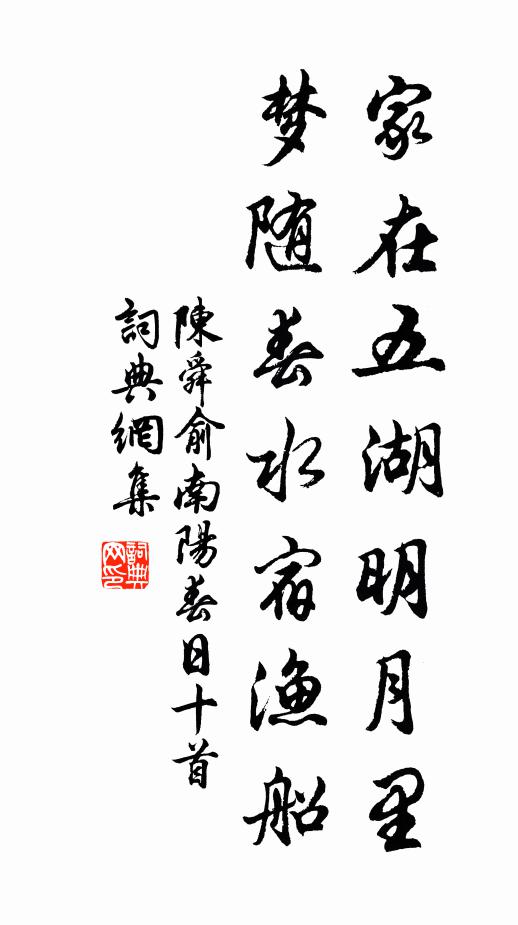 家在五湖明月里
梦随春水宿渔船
陳舜俞南陽春日十首
詞典網集
詞典网印